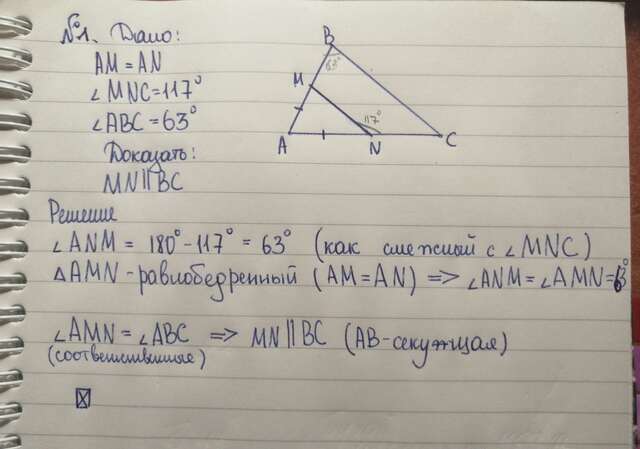 №1. Дано:
AM = AN
∠MNC = 117°
∠ABC = 63°
Доказать:
MN || BC
B
63°
M
117°
A
N
C
Решение
∠ANM = 180° - 117° = 63° (как смежный с ∠MNC)
△AMN - равнобедренный (AM = AN) => ∠ANM = ∠AMN = 63°
∠AMN = ∠ABC => MN || BC (AB - секущая)
(соответственные)